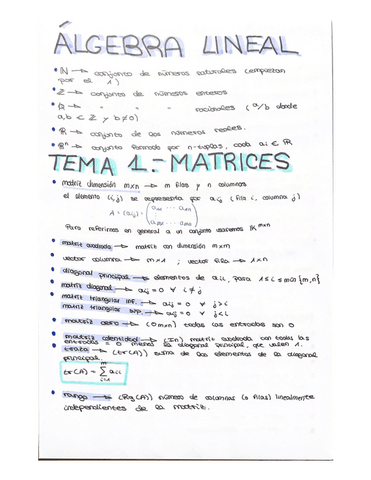 ÁLGEBRA LINEAL
• ℕ → conjunto de números naturales (empiezan
por el 1)
• ℤ → conjunto de números enteros
• ℚ → " " " racionales (a/b donde
a,b ∈ ℤ y b≠0)
• ℝ → conjunto de los números reales.
• ℝⁿ → conjunto formado por n-tuplas, cada aᵢ ∈ ℝ
TEMA 1.- MATRICES
• matriz dimensión m×n → m filas y n columnas
el elemento (i,j) se representa por aᵢⱼ (fila i, columna j)
A = (aᵢⱼ) = (a₁₁ ... a₁ₙ
... ...
aₘ₁ ... aₘₙ)
Para referirnos en general a un conjunto usaremos ℝᵐˣⁿ
• matriz cuadrada → matriz con dimensión m×m
• vector columna → m×1 ; vector fila → 1×n
• diagonal principal → elementos de aᵢᵢ, para 1≤i≤min{m,n}
• matriz diagonal → aᵢⱼ=0 ∀ j≠i
• matriz triangular inf. → aᵢⱼ=0 ∀ j>i
matriz triangular sup. → aᵢⱼ=0 ∀ j<i
• matriz cero → (0m×n) todas las entradas son 0
• matriz identidad → (In) matriz cuadrada con todas las
entradas = 0 menos la diagonal principal, que valen 1.
• traza → (tr(A)) suma de los elementos de la diagonal
principal.
tr(A) = ∑ᵢ₌₁ᵐ aᵢᵢ
• rango → (Rg(A)) número de columnas (o filas) linealmente
independientes de la matriz.